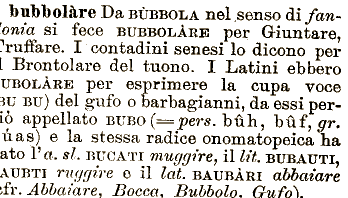 bubbolàre Da BÙBBOLA nel senso di fan-
lonia si fece BUBBOLÀRE per Giuntare,
Truffare. I contadini senesi lo dicono per
il Brontolare del tuono. I Latini ebbero
BUBOLÀRE per esprimere la cupa voce
(BU BU) del gufo o barbagianni, da essi per-
ciò appellato BUBO (= pers. bûh, bûf, gr.
búas) e la stessa radice onomatopeica ha
dato l'a. sl. BUCATI muggire, il lit. BUBAUTI,
BAUBTI ruggire e il lat. BAUBÀRI abbaiare
(cfr. Abbaiare, Bocca, Bubbolo, Gufo).